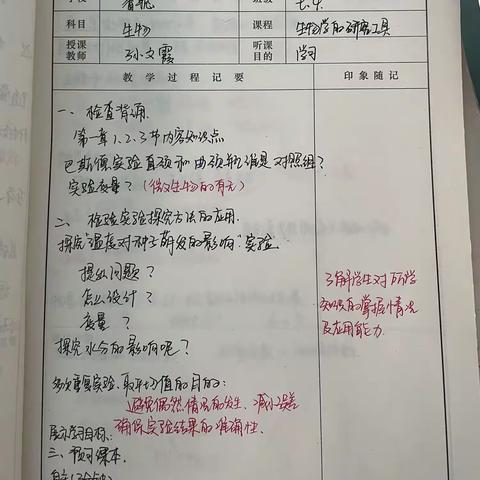 科目 生物 课程 生物学的研究工具
授课教师 孙文霞 听课目的 学习
教学过程记要 印象随记
一、检查背诵.
第一章1、2、3节内容知识点
巴斯德实验直颈和曲颈瓶谁是对照组?
实验变量?(微生物的有无)
二、检验实验探究方法的应用.
探究“温度对种子萌发的影响”实验.
提出问题?
怎么设计?
变量?
探究水分的影响呢?
了解学生对所学
知识的掌握情况
及应用能力.
多次重复实验,取平均值的目的:
避免偶然情况的发生、减小误差
确保实验结果的准确性.
展示学习目标:
三、预习课本.